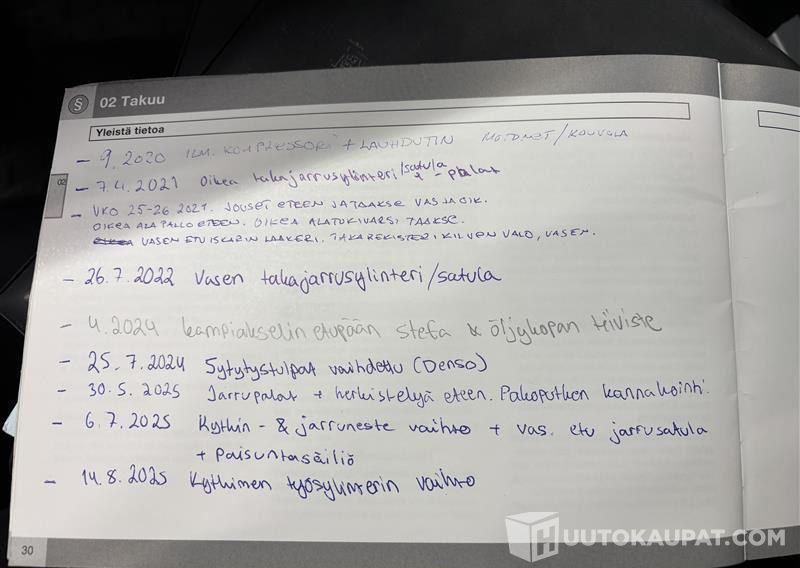 § 02 Takuu
Yleistä tietoa
02
- 9.2020 ILM. KOMPRESSORI + LAUHDUTIN MOTONET/KOUVOLA
- 7.4.2021 Oikea takajarrusylinteri/satula + palat
- VKO 25-26 2021. JOUSET ETEEN JA TAAKSE VAS JA OIK.
OIKEA ALAPALLO ETEEN. OIKEA ALATUKIVARSI TAAKSE.
VASEN ETUISKARIN LAAKERI. TAKAREKISTERI KILVEN VALO, VASEN.
- 26.7.2022 Vasen takajarrusylinteri/satula
- 4.2024 kampiakselin etupään stefa & öljykopan tiiviste
- 25.7.2024 Sytytystulpat vaihdettu (Denso)
- 30.5.2025 Jarrupalat + herkistelyä eteen. Pakoputken kannakointi.
- 6.7.2025 Kytkin- & jarruneste vaihto + vas. etu jarrusatula
+ Paisuntasäiliö
- 14.8.2025 Kytkimen työsylinterin vaihto
30
HUUTOKAUPAT.COM